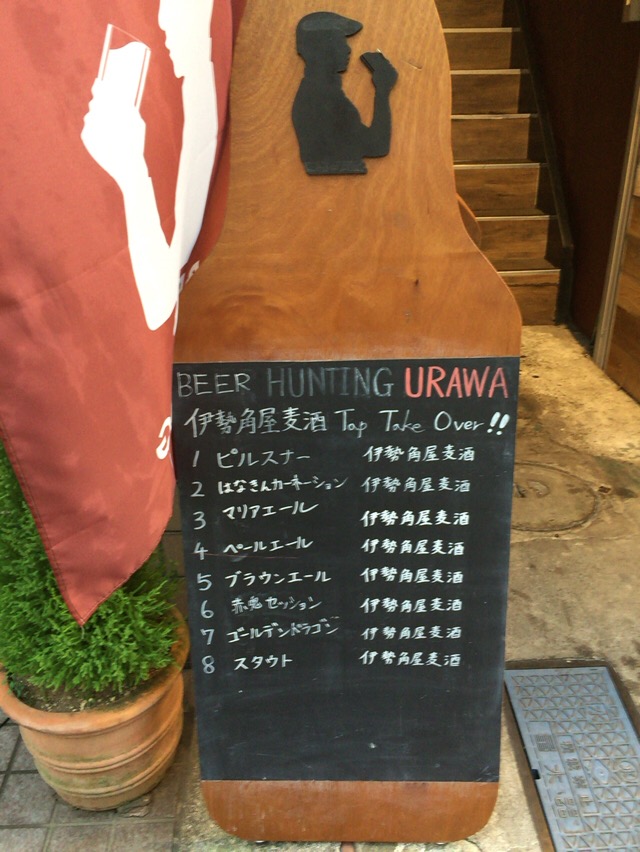 BEER HUNTING URAWA
伊勢角屋麦酒 Tap Take Over!!
1 ピルスナー 伊勢角屋麦酒
2 はなきんカーネーション 伊勢角屋麦酒
3 マリアエール 伊勢角屋麦酒
4 ペールエール 伊勢角屋麦酒
5 ブラウンエール 伊勢角屋麦酒
6 赤鬼セッション 伊勢角屋麦酒
7 ゴールデンドラゴン 伊勢角屋麦酒
8 スタウト 伊勢角屋麦酒